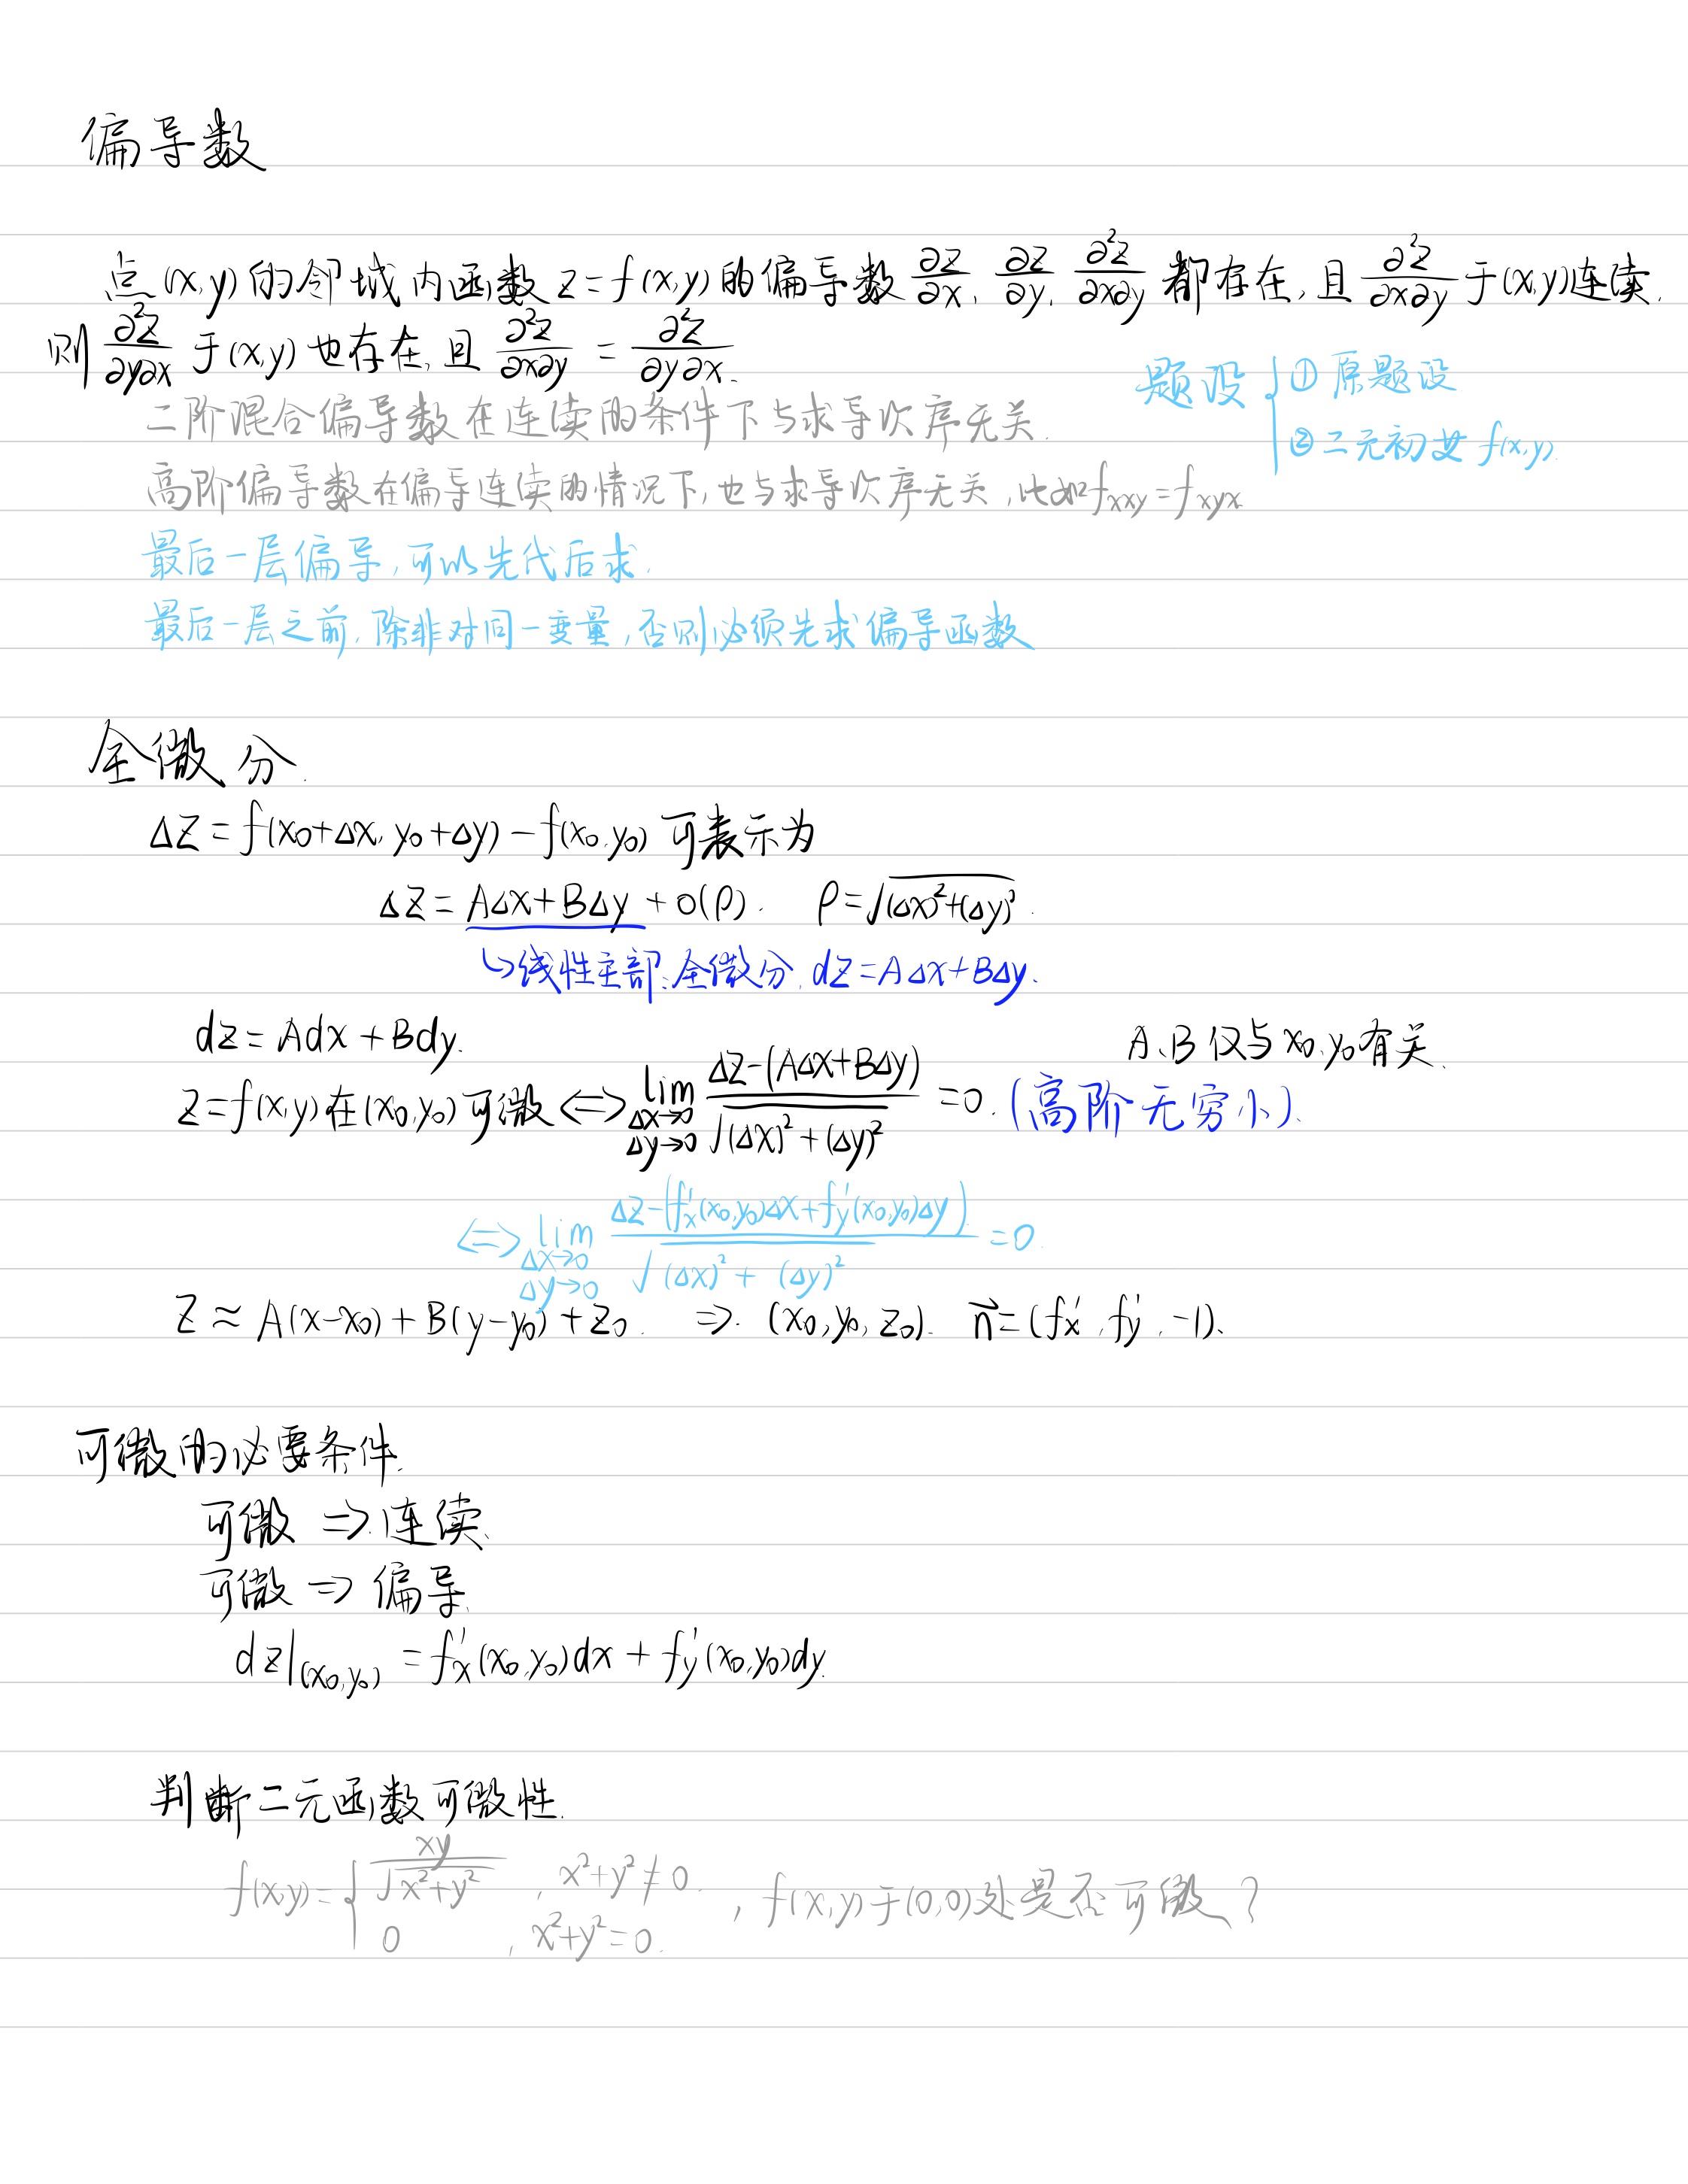 偏导数
点(x,y)的邻域内函数 z=f(x,y)的偏导数 ∂z/∂x, ∂z/∂y, ∂²z/∂x∂y 都存在,且 ∂²z/∂x∂y 于(x,y)连续.
则 ∂²z/∂y∂x 于(x,y)也存在,且 ∂²z/∂x∂y = ∂²z/∂y∂x.
题设 { ① 原题设
② 二元初 f(x,y).
二阶混合偏导数在连续的条件下与求导次序无关.
高阶偏导数在偏导连续的情况下,也与求导次序无关,比如fxxy=fxyx.
最后一层偏导,可以先代后求.
最后一层之前,除非对同一变量,否则必须先求偏导函数
全微分.
Δz=f(x₀+Δx, y₀+Δy)-f(x₀,y₀) 可表示为
Δz=AΔx+BΔy+o(ρ). ρ=√((Δx)²+(Δy)²).
↳线性主部:全微分. dz=AΔx+BΔy.
dz=Adx+Bdy. A、B仅与x₀,y₀有关.
z=f(x,y)在(x₀,y₀)可微 <=> lim Δx→0 Δy→0 (Δz-(AΔx+BΔy))/√((Δx)²+(Δy)²) =0. (高阶无穷小).
<=> lim Δx→0 Δy→0 (Δz-(f'x(x₀,y₀)Δx+f'y(x₀,y₀)Δy))/√((Δx)²+(Δy)²) =0.
z≈A(x-x₀)+B(y-y₀)+z₀. ⇒. (x₀,y₀,z₀). n⃗=(f'x, f'y, -1).
可微的必要条件.
可微 ⇒ 连续.
可微 ⇒ 偏导.
dz|(x₀,y₀) =f'x(x₀,y₀)dx+f'y(x₀,y₀)dy.
判断二元函数可微性.
f(x,y)={ xy/√(x²+y²) , x²+y²≠0. , f(x,y)于(0,0)处是否可微?
0 , x²+y²=0.